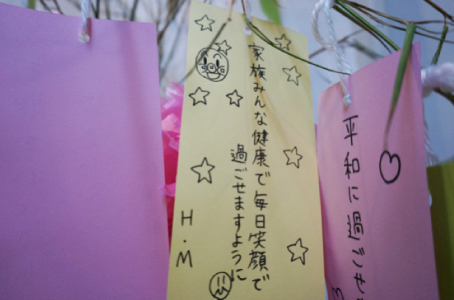 家族みんな健康で毎日笑顔で
過ごせますように
H・M
平和に過ごせ